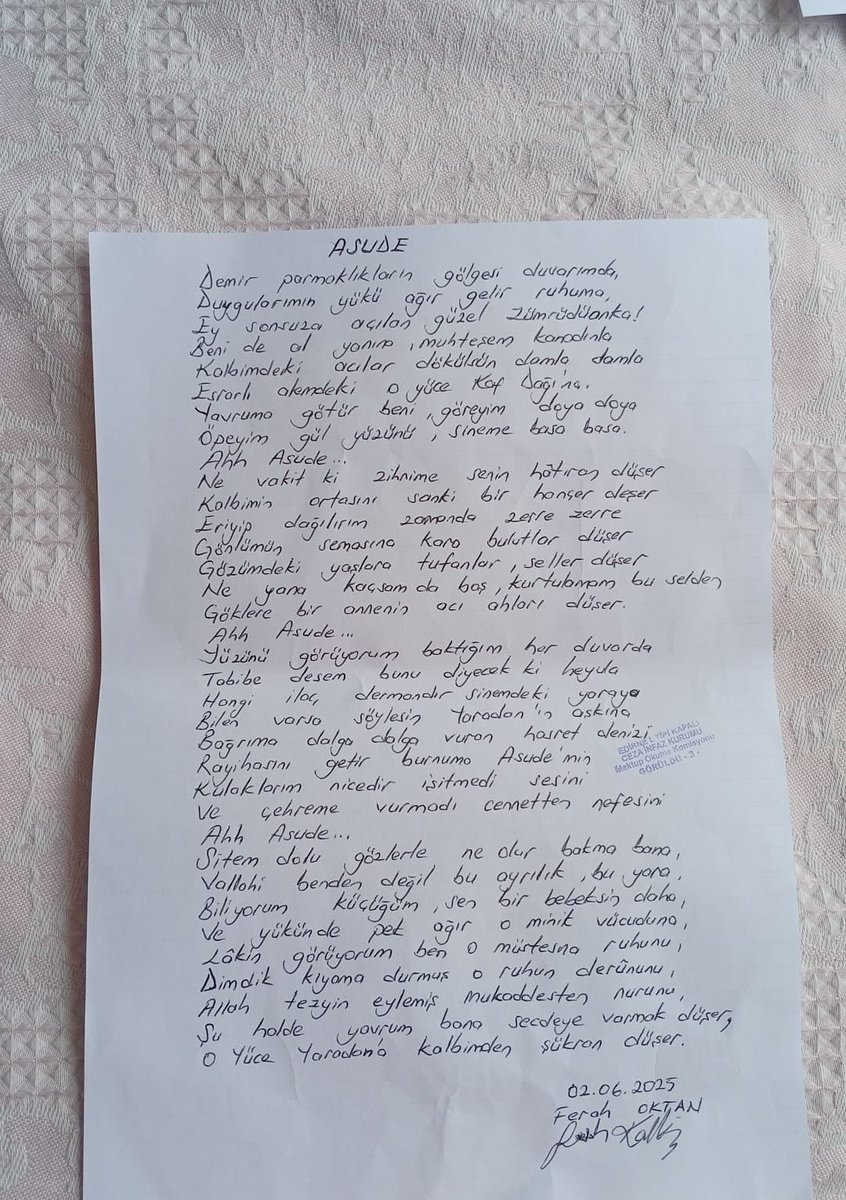 ASUDE
Demir parmaklıkların gölgesi duvarımda,
Duygularımın yükü ağır gelir ruhuma,
Ey sonsuza açılan güzel Zümrüdüanka!
Beni de al yanına, muhteşem kanadınla
Kalbimdeki acılar dökülsün damla damla
Esrarlı alemdeki o yüce Kaf Dağı'na.
Yavruma götür beni, göreyim doya doya
Öpeyim gül yüzünü, sineme basa basa.
Ahh Asude...
Ne vakit ki zihnime senin hâtıran düşer
Kalbimin ortasını sanki bir hançer deşer
Eriyip dağılırım zamanda zerre zerre
Gönlümün semasına kara bulutlar düşer
Gözümdeki yaşlara tufanlar, seller düşer
Ne yana kaçsam da boş, kurtulamam bu selden
Göklere bir annenin acı ahları düşer.
Ahh Asude...
Yüzünü görüyorum baktığım her duvarda
Tabibe desem bunu diyecek ki heyula
Hangi ilaç dermandır sinemdeki yaraya
Bilen varsa söylesin Yaradan'ın aşkına
Bağrıma dalga dalga vuran hasret denizi
Rayihasını getir burnuma Asude'min
Kulaklarım nicedir işitmedi sesini
Ve çehreme vurmadı cennetten nefesini
Ahh Asude...
Sitem dolu gözlerle ne olur bakma bana,
Vallahi benden değil bu ayrılık, bu yara,
Biliyorum küçüğüm, sen bir bebeksin daha,
Ve yükünde pek ağır o minik vücuduna,
Lâkin görüyorum ben o müstesna ruhunu,
Dimdik kıyama durmuş o ruhun derûnunu,
Allah tezyin eylemiş mukaddesten nurunu,
Şu halde yavrum bana secdeye varmak düşer,
O Yüce Yaradan'a kalbimden şükran düşer.
EDİRNE L TİPİ KAPALI
CEZA İNFAZ KURUMU
Mektup Okuma Komisyonu
GÖRÜLDÜ - 3 -
02.06.2025
Ferah OKTAN